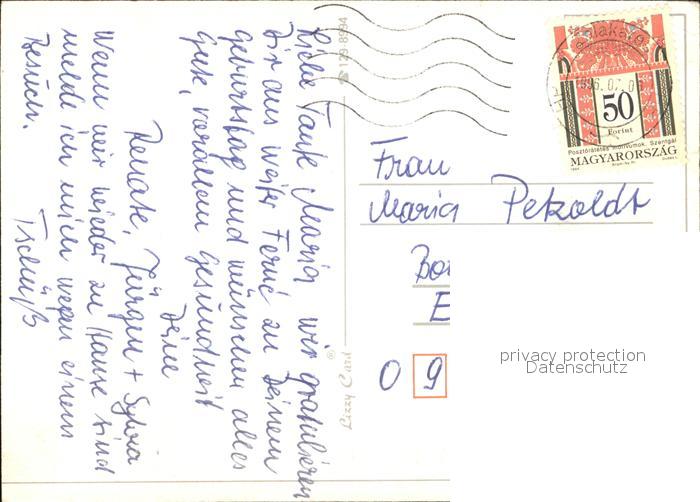 Liebe Tante Maria, wir gratulieren
Dir aus weiter Ferne zu Deinem
Geburtstag und wünschen alles
Gute, vorallem Gesundheit
Deine
Renate, Jürgen + Sylvia
Wenn wir wieder zu Hause sind
melde ich mich wegen einem
Besuch.
Tschüß
☎ 129-8994
Lizzy Card ®
50
Forint
Posztórátétes motívumok, Szentgál
MAGYARORSZÁG
1994
Frau
Maria Petzoldt
Bo
E
0 9
privacy protection
Datenschutz